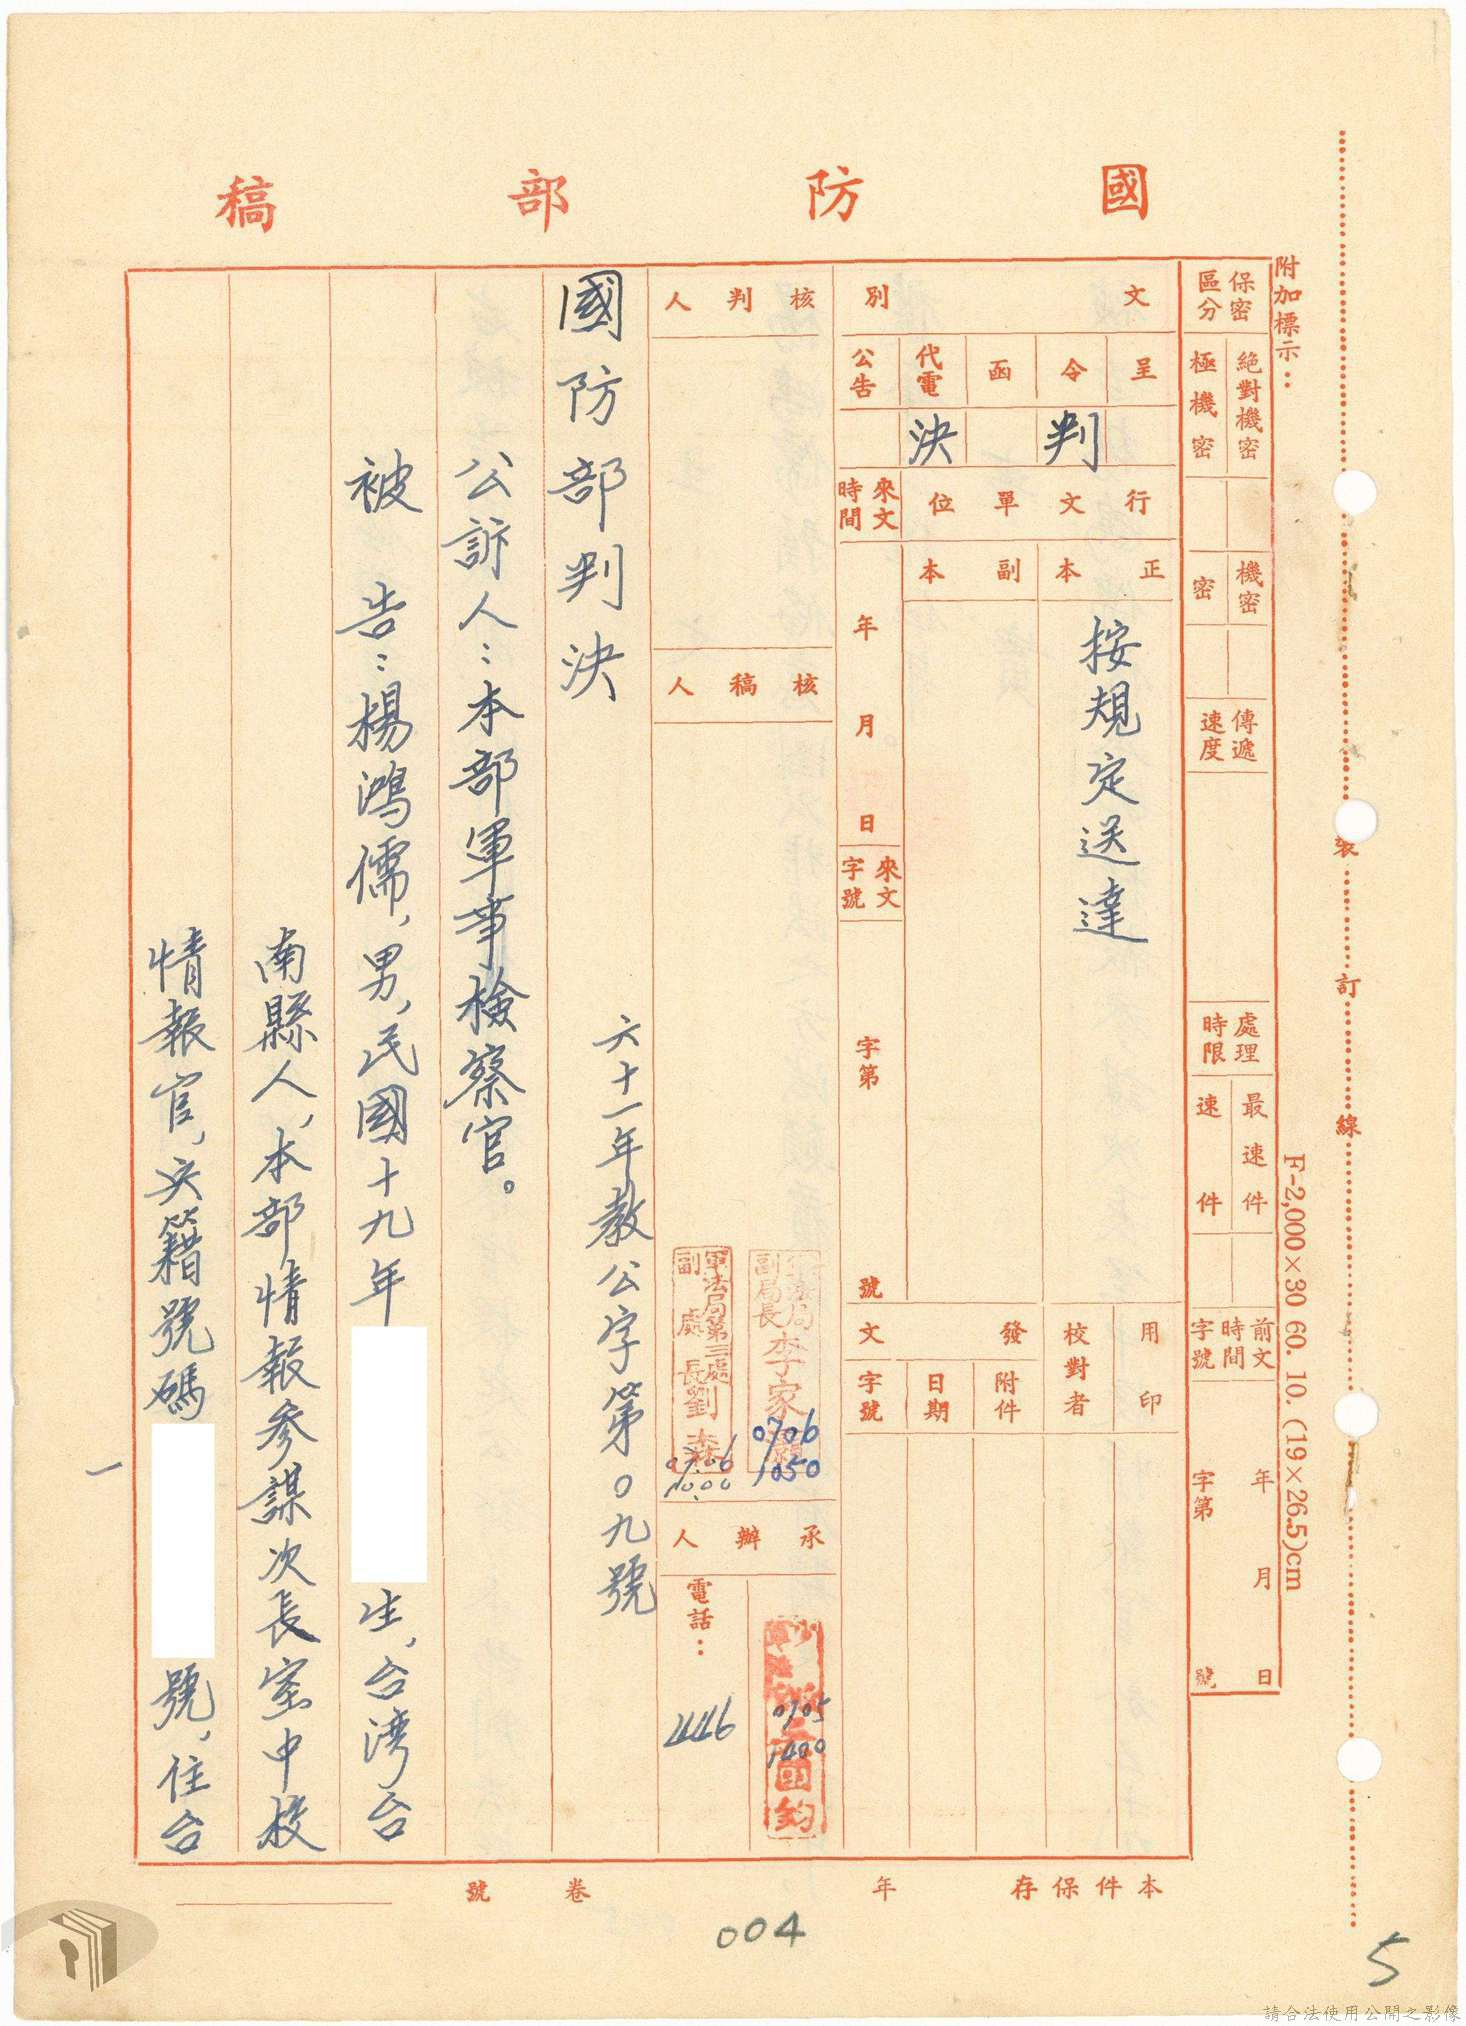 國防部稿
附加標示：
保密區分
絕對機密
極機密
機密
密
傳遞速度
處理時限
最速件
速件
前文時間字號
年月日
字第號
文別
呈
令
函
代電
公告
判決
行文單位
正本
副本
按規定送達
來文時間
年月日
來文字號
字第號
用印
校對者
發文
附件
日期
字號
核判人
核稿人
副局長李家
0706
1050
軍法局第三處
副處長劉森
0706
10.00
承辦人
0705
1400
電話：
446
國防部判決
六十一年教公字第0九號
公訴人：本部軍事檢察官。
被告：楊鴻儒，男，民國十九年
生，台湾台
南縣人，本部情報參謀次長室中校
情報官，兵籍號碼
號，住台
一
本件保存年
卷號
裝訂線
F-2,000×30 60. 10. (19×26.5)cm
004
5
請合法使用公開之影像